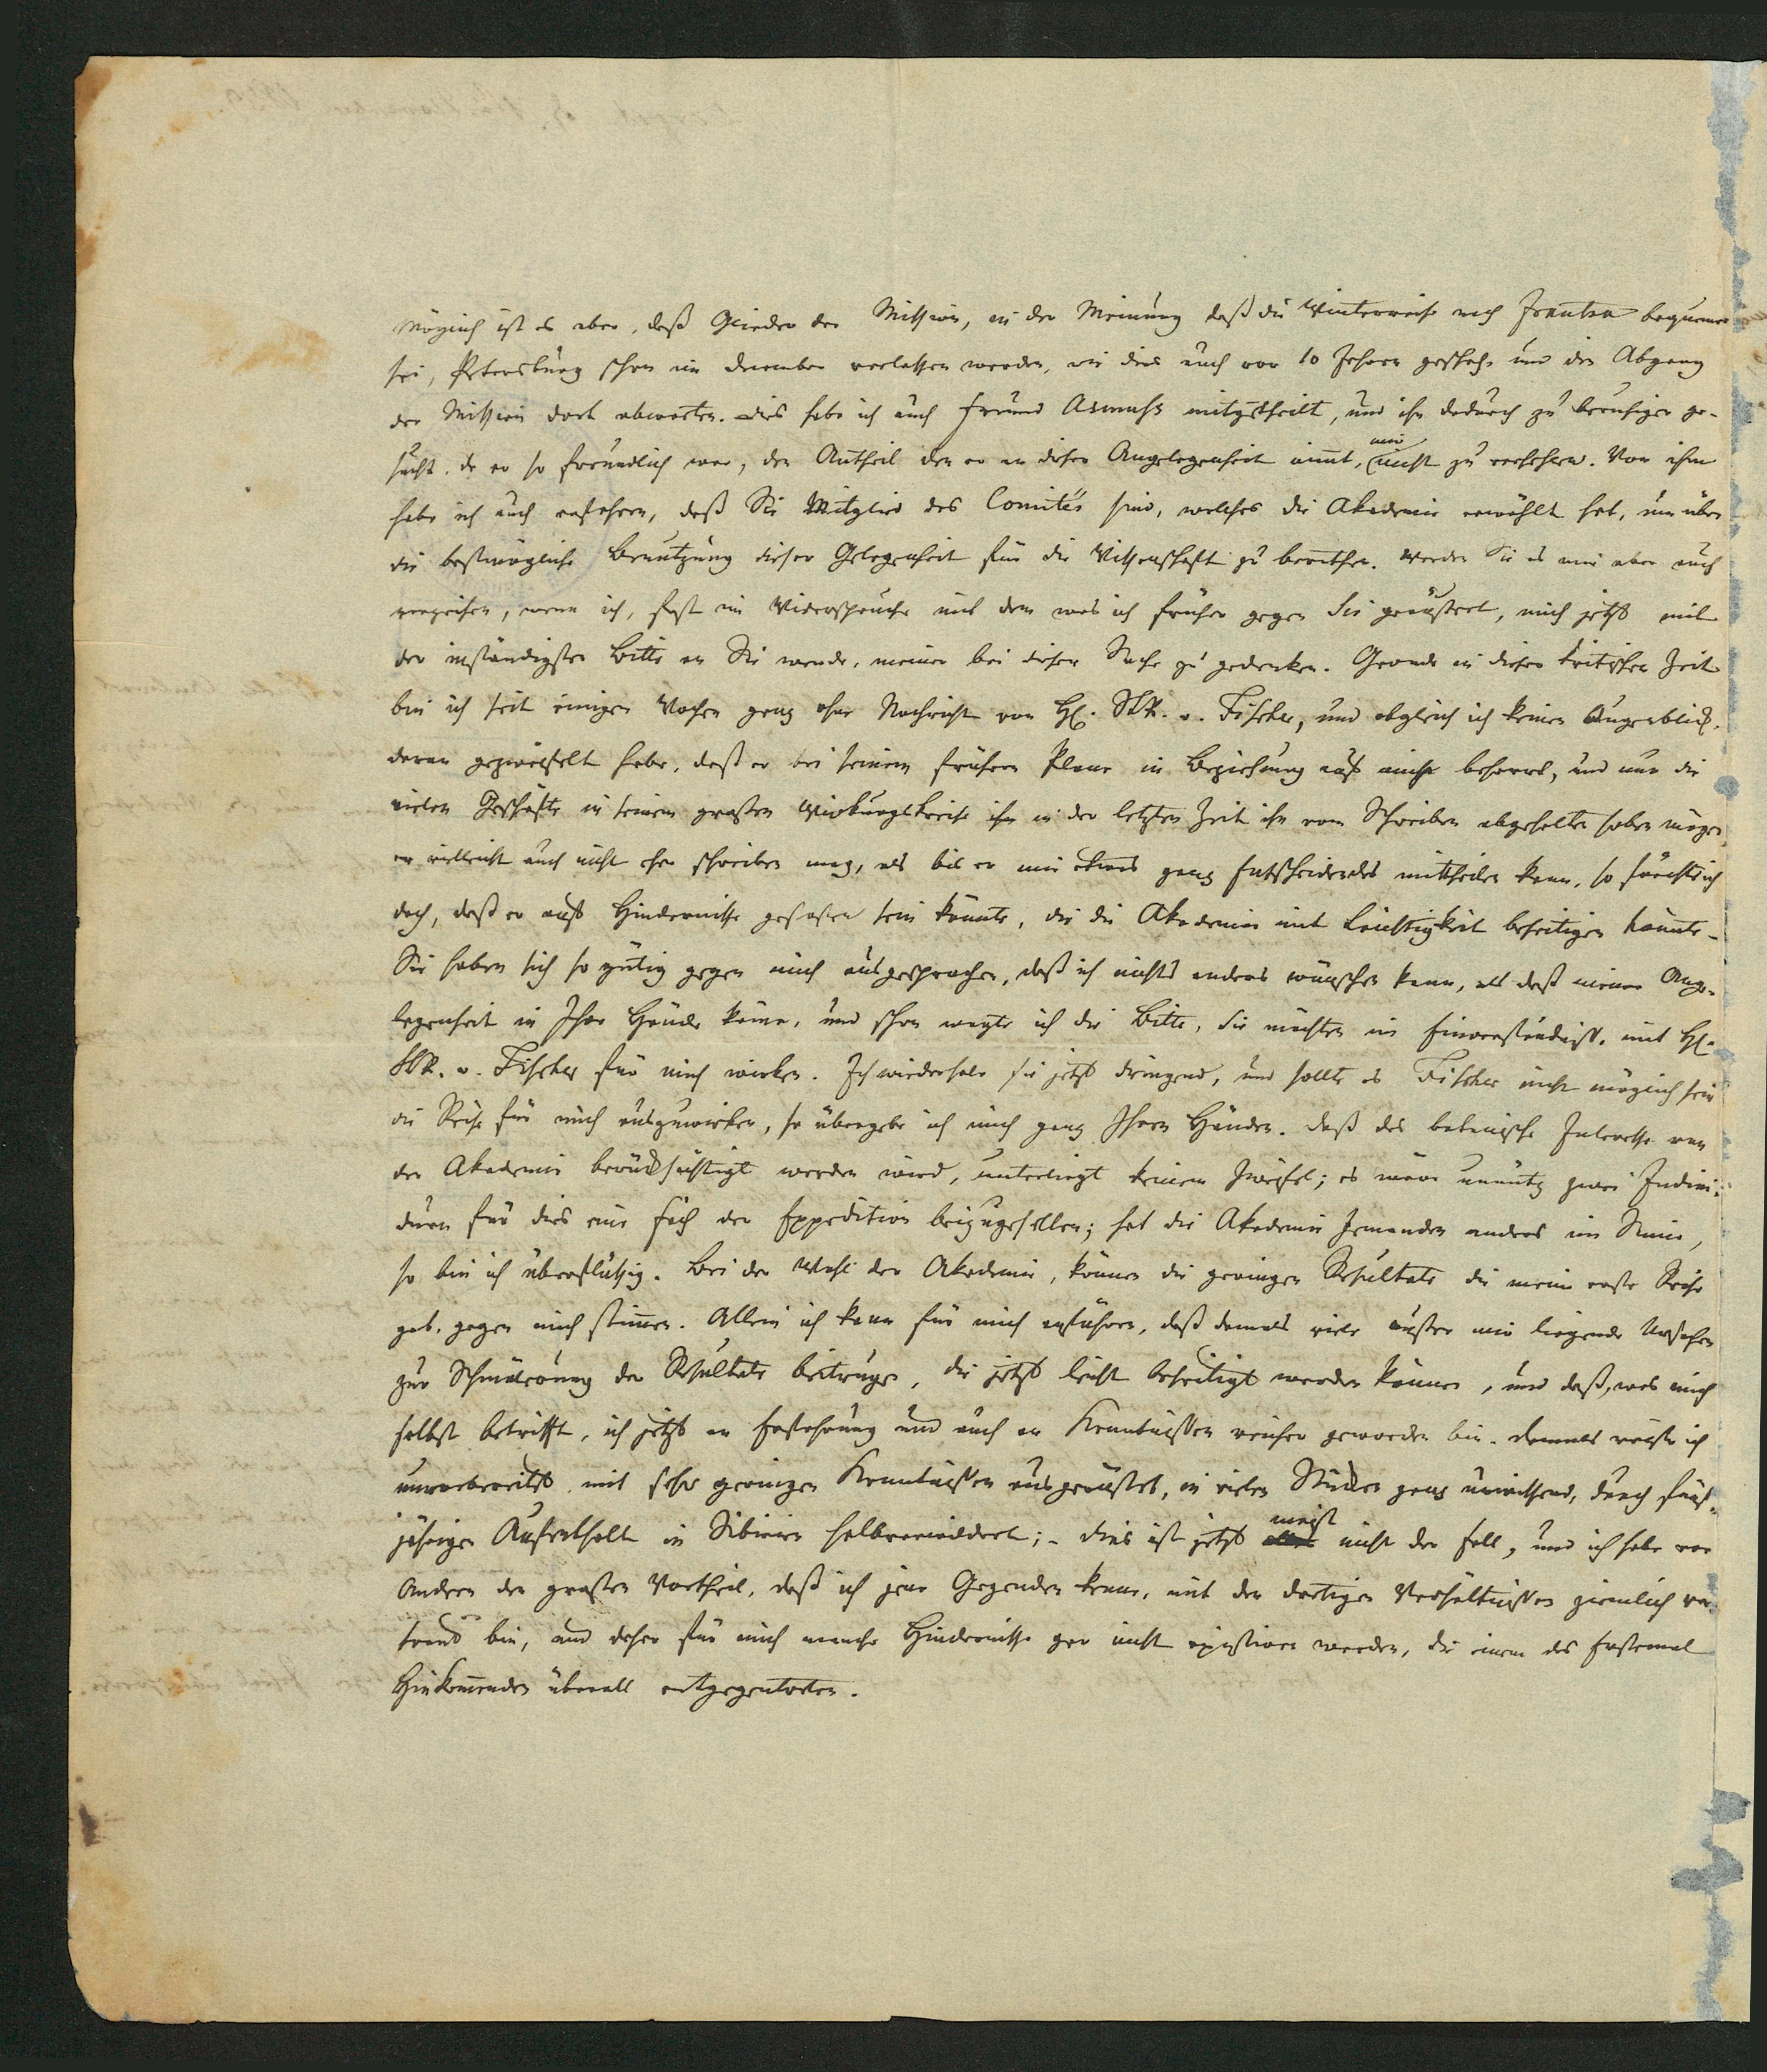 Möglich ist es aber, daß Glieder der Mission, in der Meinung daß die Winterreise nach Irkutzk bequemer
sei, Petersburg schon im December verlassen werden, wie dies auch vor 10 Jahren geschah und den Abgang
der Mission dort abwarten. Dies habe ich auch Freund Asmuss mitgetheilt, und ihn dadurch zu beruhigen ge-
sucht, da er so freundlich war, den Antheil den er an dieser Angelegenheit nimt, mir nicht zu verhehlen. Von ihm
habe ich auch erfahren, daß Sie Mitglied des Comités sind, welches die Akademie erwählt hat, um über
die bestmögliche Benutzung dieser Gelegenheit für die Wissenschaft zu berathen. Werden Sie es mir aber auch
verzeihen, wenn ich, fast im Widerspruche mit dem was ich früher gegen Sie geäußert, mich jetzt mit
der inständigsten Bitte an Sie wende, meiner bei dieser Sache zu gedenken. Gerade in dieser kritischen Zeit
bin ich seit einigen Wochen ganz ohne Nachricht von H. StR. v. Fischer, und obgleich ich keinen Augenblick
daran gezweifelt habe, daß er bei seinem frühern Plane in Beziehung auf mich beharrt, und nur die
vielen Geschäfte in seinem großen Wirkungskreise ihn in der letzten Zeit ihn vom Schreiben abgehalten haben mögen,
er vielleicht auch nicht eher schreiben mag, als bis er mir etwas ganz Entscheidendes mittheilen kann, so fürchte ich
doch, daß er auf Hindernisse gestoßen sein könnte, die die Akademie mit Leichtigkeit beseitigen könnte.
Sie haben sich so gütig gegen mich ausgesprochen, daß ich nichts anders wünschen kann, als daß meine Ange-
legenheit in Ihre Hände käme, und schon wagte ich die Bitte, Sie möchten im Einverständniß mit H.
StR. v. Fischer für mich wirken. Ich wiederhole sie jetzt dringend, und sollte es Fischer nicht möglich sein
die Reise für mich auszuwirken, so übergebe ich mich ganz Ihren Händen. Daß das botanische Interesse von
der Akademie berücksichtigt werden wird, unterliegt keinem Zweifel; es wäre unnütz zwei Indivi-
duen für dies eine Fach der Expedition beizugesellen; hat die Akademie Jemanden anders im Sinne,
so bin ich überflüssig. Bei der Wahl der Akademie, können die geringen Resultate die meine erste Reise
gab, gegen mich stimen. Allein ich kann für mich anführen, daß damals viele außer mir liegende Ursachen
zur Schmälerung der Resultate beitrugen, die jetzt leicht beseitigt werden können, und daß, was mich
selbst betrifft, ich jetzt an Erfahrung und auch an Kenntnissen reicher geworden bin. Damals reiste ich
unvorbereitet, mit sehr geringen Kenntnissen ausgerüstet, in vielen Stücken ganz unwissend, durch fünf-
jährigen Aufenthalt in Sibirien halbverwildert; - dies ist jetzt meist nicht der Fall, und ich habe vor
Andern den großen Vortheil, daß ich jene Gegenden kenne, mit den dortigen Verhältnissen ziemlich ver-
traut bin, und daher für mich manche Hindernisse gar nicht existiren werden, die einem das Erstemal
Hinkomenden überall entgegentreten.